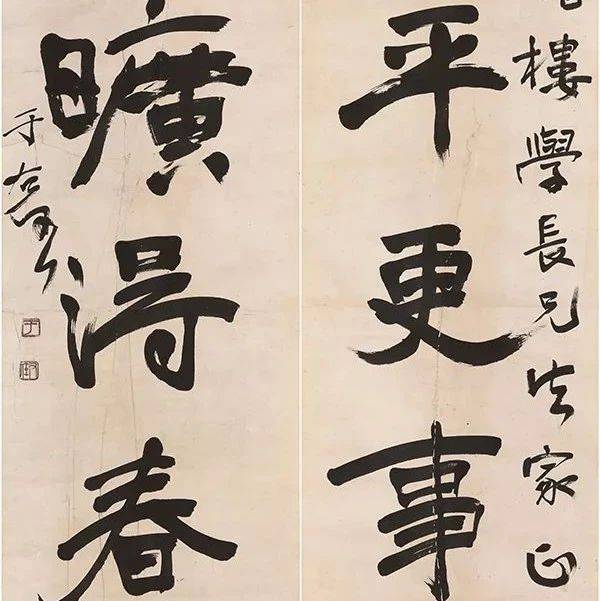 樓學長兄法家正
平更事
曠得春
于右任